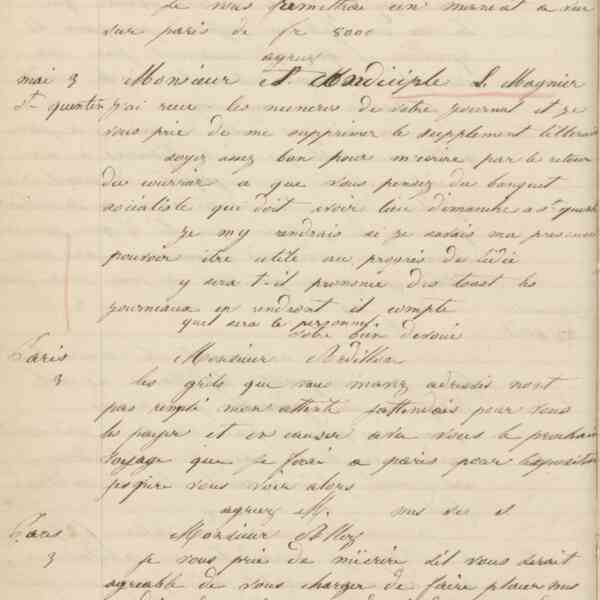 je vous remettrai un mandat a vue
sur paris de fr 8000
agreez
mai 3 Monsieur L. Magnier
St quentin j'ai recu les numeros de votre journal et je
vous prie de me supprimer le supplement litterair
soyez assez bon pour m'ecrire par le retour
du courrier a que vous pensez du banquet
socialiste qui doit avoir lieu dimanche a St quentin
je my rendrais si je savais ma presence
pouvoir etre utile au progrès de l'idée
y sera t-il prononcé des toast les
journeaux en rendront il compte
quel sera le personnel
votre bien devoué
Paris Monsieur Ardillon
3 les grils que vous mavez adressés nont
pas rempli mon attente jattendais pour vous
les payer et en causer avec vous le prochain
voyage que je ferai a paris pour lexposition
jespere vous voir alors
agreez M. mes sis s
Paris Monsieur Allez
3 je vous prie de mécrire sil vous serait
agreable de vous charger de faire placer mes